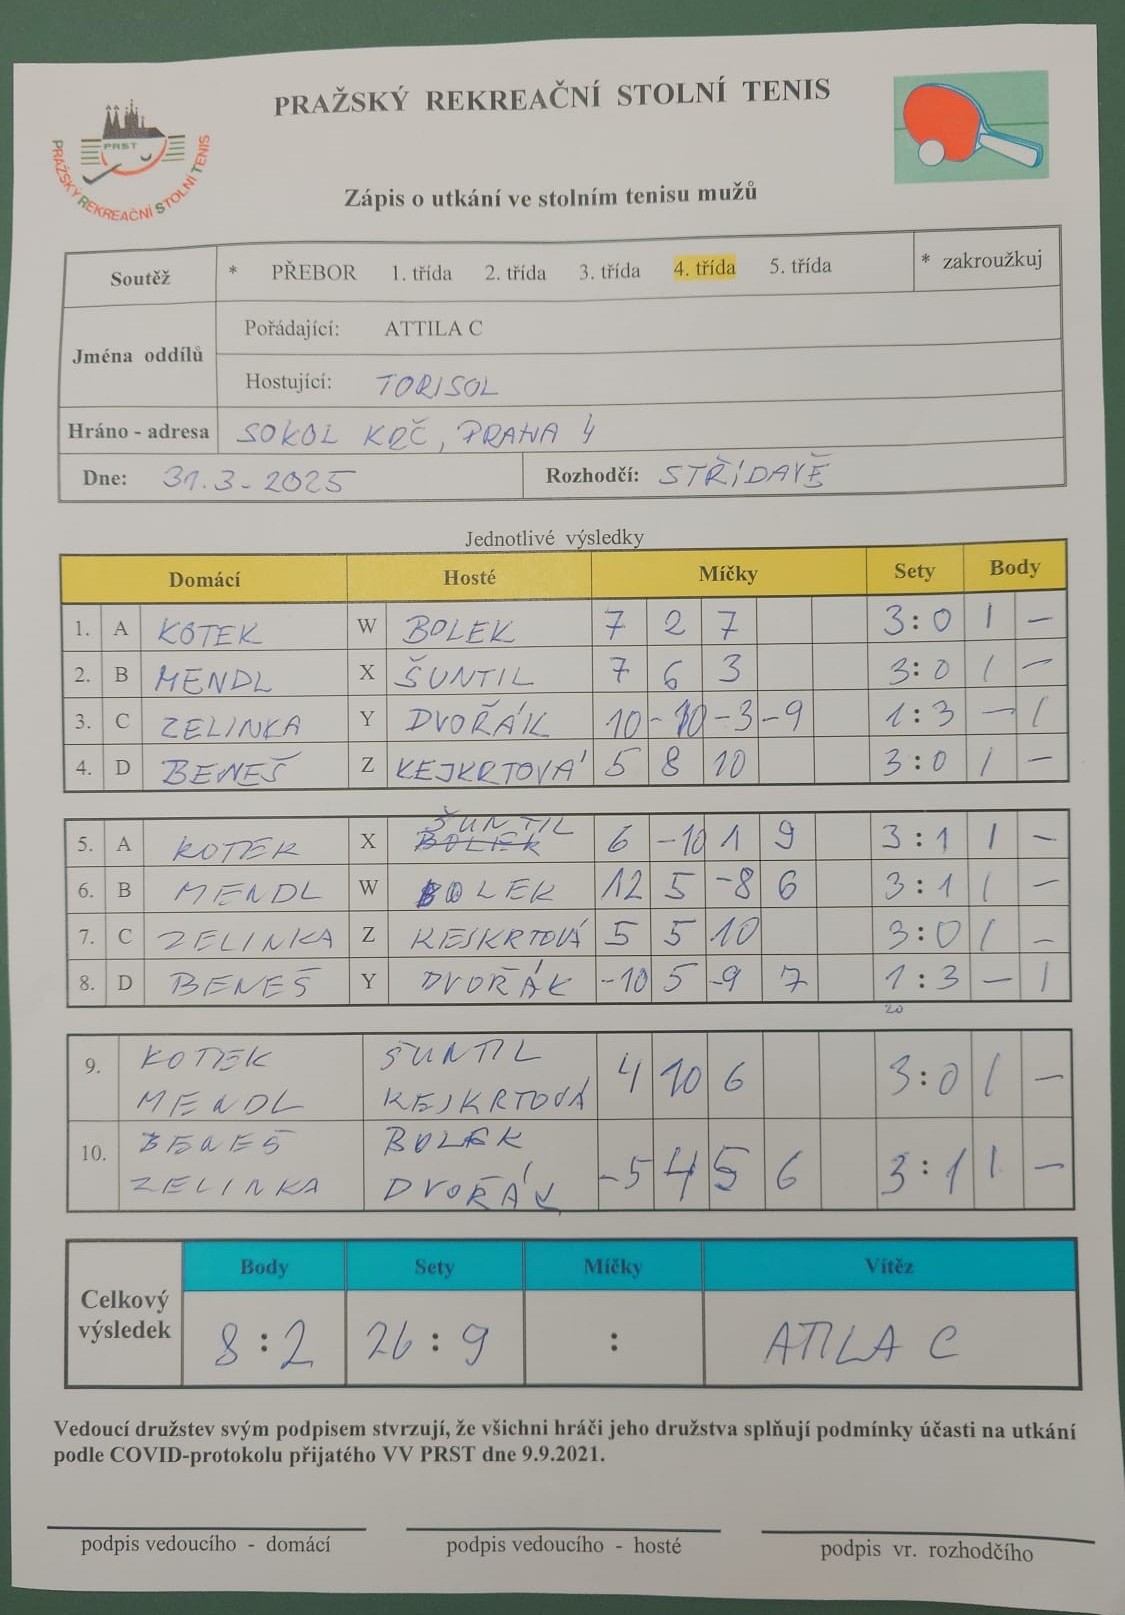 PRAŽSKÝ REKREAČNÍ STOLNÍ TENIS
PRST
PRAŽSKÝ REKREAČNÍ STOLNÍ TENIS
Zápis o utkání ve stolním tenisu mužů
Soutěž * PŘEBOR 1. třída 2. třída 3. třída 4. třída 5. třída * zakroužkuj
Jména oddílů
Pořádající: ATTILA C
Hostující: TORISOL
Hráno - adresa SOKOL KRČ, PRAHA 4
Dne: 31.3.2025 Rozhodčí: STŘÍDAVĚ
Jednotlivé výsledky
Domácí Hosté Míčky Sety Body
1. A KOTEK W BOLEK 7 2 7 3:0 1 –
2. B MENDL X ŠUNTIL 7 6 3 3:0 1 –
3. C ZELINKA Y DVOŘÁK 10 -10 -3 -9 1:3 – 1
4. D BENEŠ Z KEJKRTOVÁ 5 8 10 3:0 1 –
ŠUNTIL
5. A KOTEK X BOLEK 6 -10 1 9 3:1 1 –
6. B MENDL W BOLEK 12 5 -8 6 3:1 1 –
7. C ZELINKA Z KEJKRTOVÁ 5 5 10 3:0 1 –
8. D BENEŠ Y DVOŘÁK -10 5 -9 7 1:3 – 1
20
9. KOTEK ŠUNTIL 4 10 6 3:0 1 –
MENDL KEJKRTOVÁ
10. BENEŠ BOLEK -5 4 5 6 3:1 1 –
ZELINKA DVOŘÁK
Body Sety Míčky Vítěz
Celkový výsledek 8:2 26:9 : ATILA C
Vedoucí družstev svým podpisem stvrzují, že všichni hráči jeho družstva splňují podmínky účasti na utkání
podle COVID-protokolu přijatého VV PRST dne 9.9.2021.
podpis vedoucího - domácí podpis vedoucího - hosté podpis vr. rozhodčího